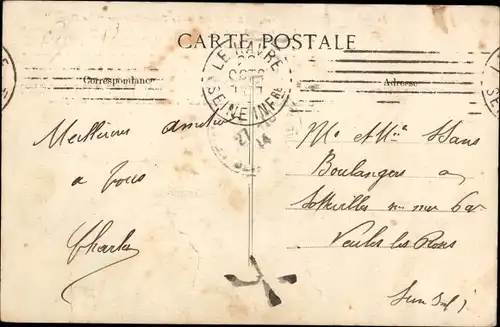 CARTE POSTALE
Correspondance
Adresse
LE HAVRE
SEINE INFRE
27 10
14
Meilleures amitiés
a vous
Charles
Mr et Mme
Boulangers a
Sotteville sur mer par
Veules les Roses
Sne Inf